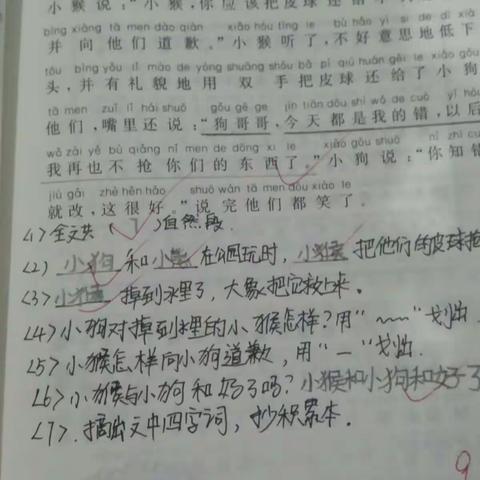 小猴说：“小猴，你应该把皮球还给小
bìng xiàng tā men dào qiàn xiǎo hóu tīng le bù hǎo yì si de dī xià
并向他们道歉。”小猴听了，不好意思地低下
tóu bìng yǒu lǐ mào de yòng shuāng shǒu bǎ pí qiú huán gěi le xiǎo gǒu
头，并有礼貌地用双手把皮球还给了小狗
tā men zuǐ lǐ hái shuō gǒu gē ge jīn tiān dōu shì wǒ de cuò yǐ hòu
他们，嘴里还说：“狗哥哥，今天都是我的错，以后
wǒ zài yě bù qiǎng nǐ men de dōng xi le xiǎo gǒu shuō nǐ zhī cuò
我再也不抢你们的东西了。”小狗说：“你知错
jiù gǎi zhè hěn hǎo shuō wán tā men dōu xiào le
就改，这很好。”说完他们都笑了。
<1>全文共（7）自然段.
<2>小狗和小熊在公园玩时，小猴把他们的皮球抢
<3>小猴掉到水里了，大象把它救上来。
<4>小狗对掉到水里的小猴怎样？用“﹏”划出.
<5>小猴怎样向小狗道歉，用“—”划出.
<6>小猴与小狗和好了吗？小猴和小狗和好了
<7>.摘出文中四字词，抄积累本.
9